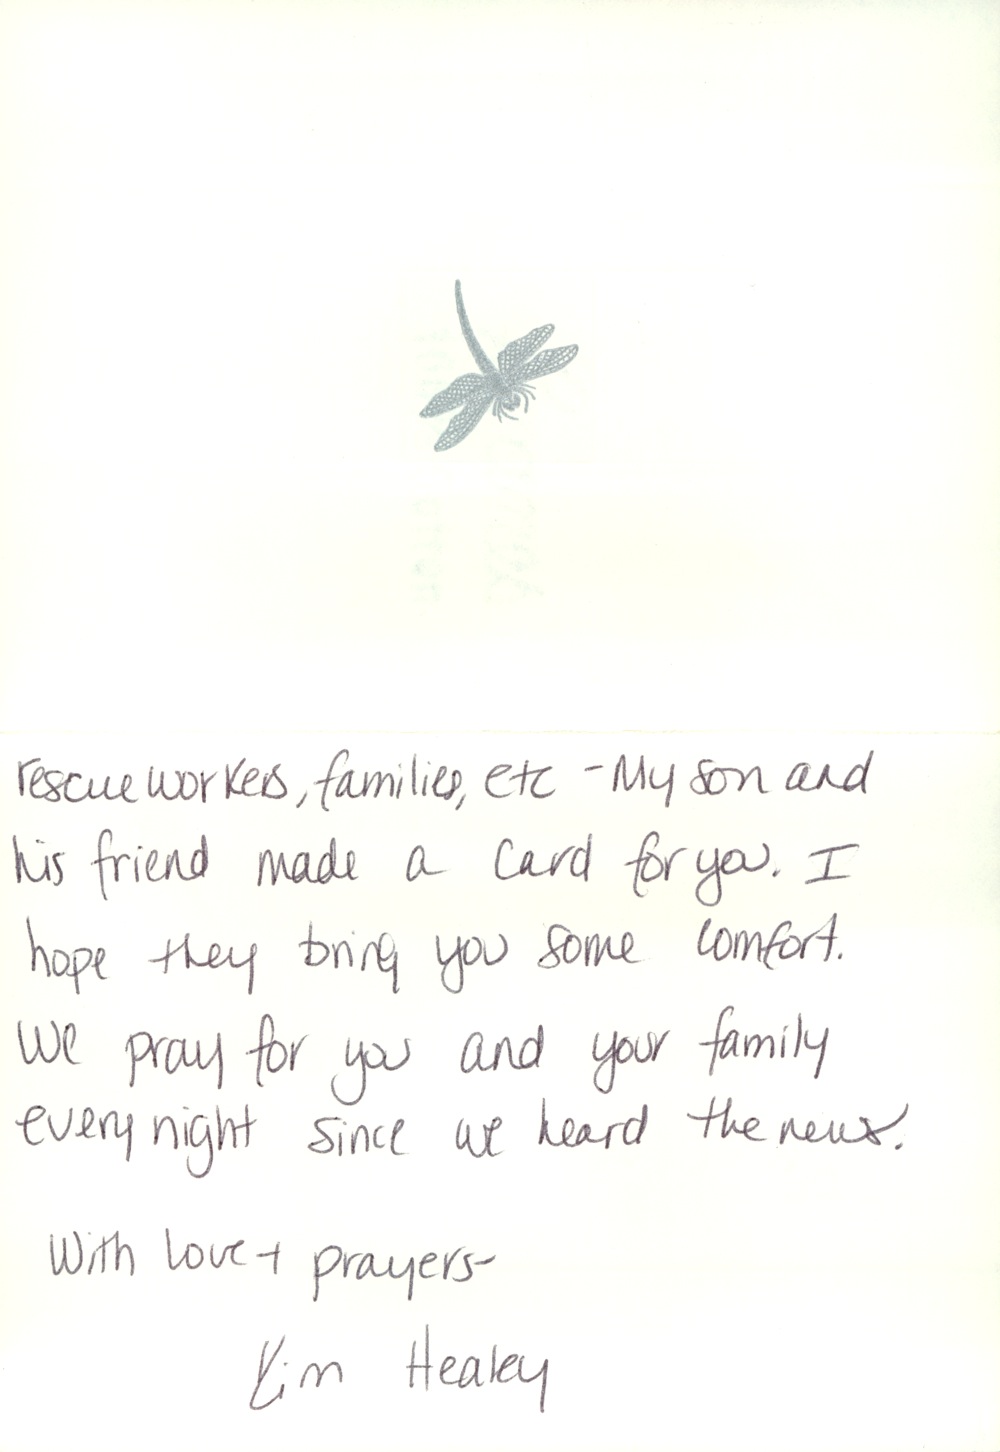 rescue workers, families, etc - My son and
his friend made a card for you. I
hope they bring you some comfort.
We pray for you and your family
every night since we heard the news.
With love + prayers-
Kim Healey